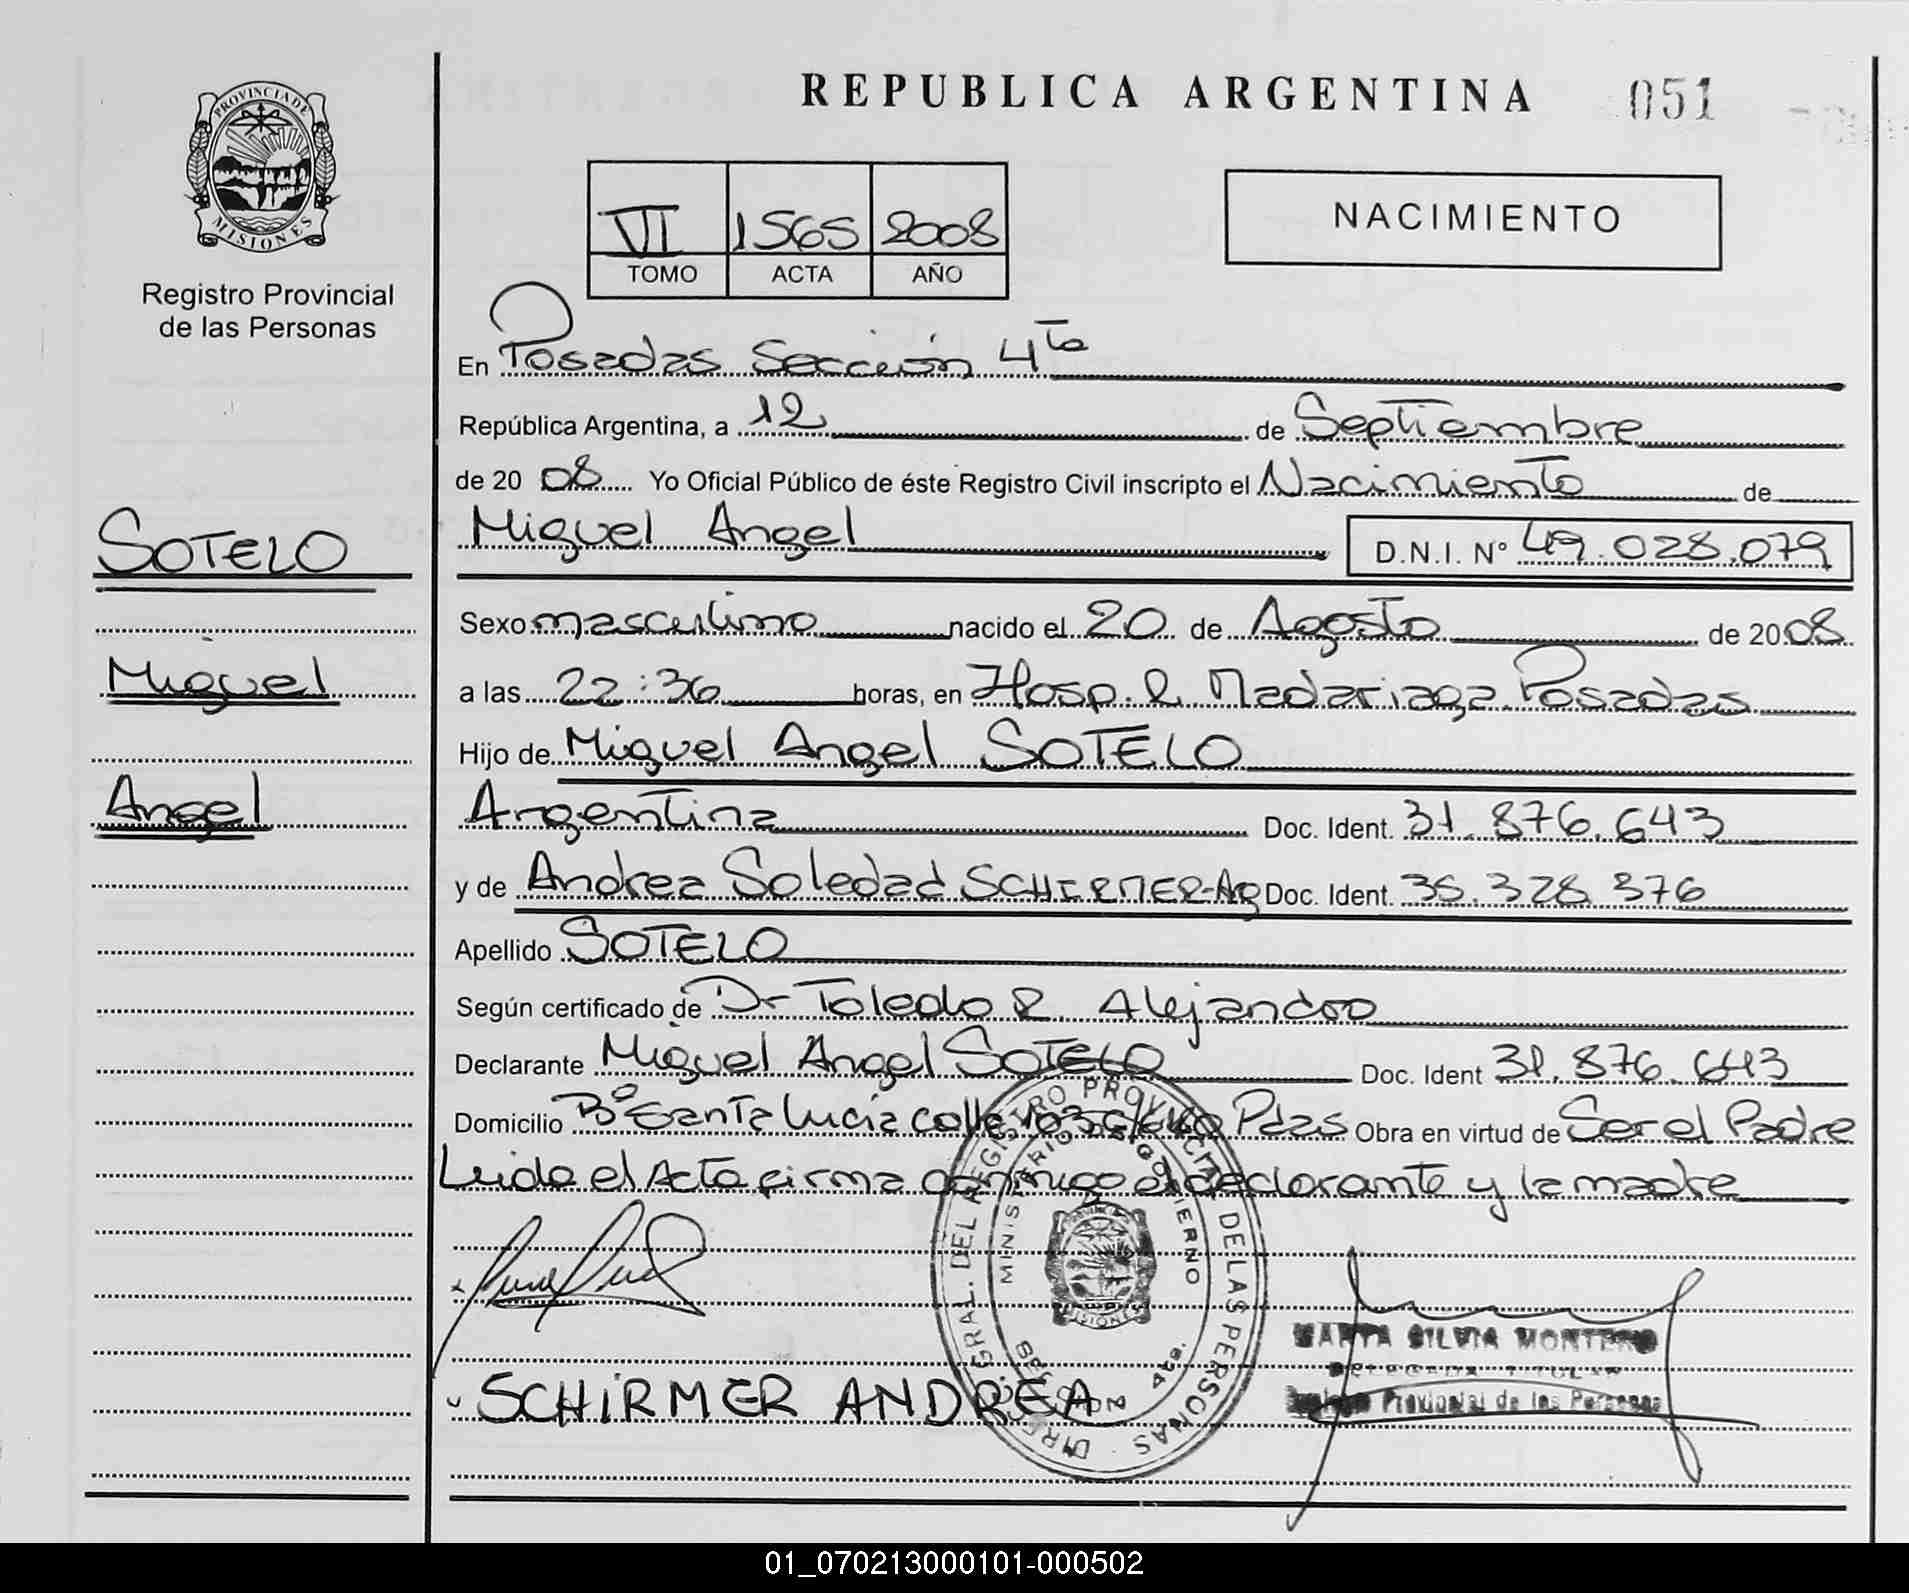 REPUBLICA ARGENTINA 051
PROVINCIA DE
MISIONES
Registro Provincial
de las Personas
VI 1565 2008
TOMO ACTA AÑO
NACIMIENTO
En Posadas Sección 4ta
República Argentina, a 12 de Septiembre
de 2008 Yo Oficial Público de éste Registro Civil inscripto el Nacimiento de
Miguel Angel D.N.I. N° 49.028.079
SOTELO
Miguel
Angel
Sexo masculino nacido el 20 de Agosto de 2008
a las 22:36 horas, en Hosp. R. Madariaga Posadas
Hijo de Miguel Angel SOTELO
Argentina Doc. Ident. 31.876.643
y de Andrea Soledad SCHIRMER-Arg Doc. Ident. 35.328.376
Apellido SOTELO
Según certificado de Dr Toledo R. Alejandro
Declarante Miguel Angel SOTELO Doc. Ident 31.876.643
Domicilio B° Santa Lucia calle 103 c/ Pdas Obra en virtud de Ser el Padre
Leida el Acta firma conmigo el declarante y la madre
DIREC. GRAL. DEL REGISTRO PROVINCIAL DE LAS PERSONAS
MINISTERIO DE GOBIERNO
MISIONES
SECCION 4ta.
MARTA SILVIA MONTERO
DELEGADA TITULAR
Registro Provincial de las Personas
SCHIRMER ANDREA
01_070213000101-000502